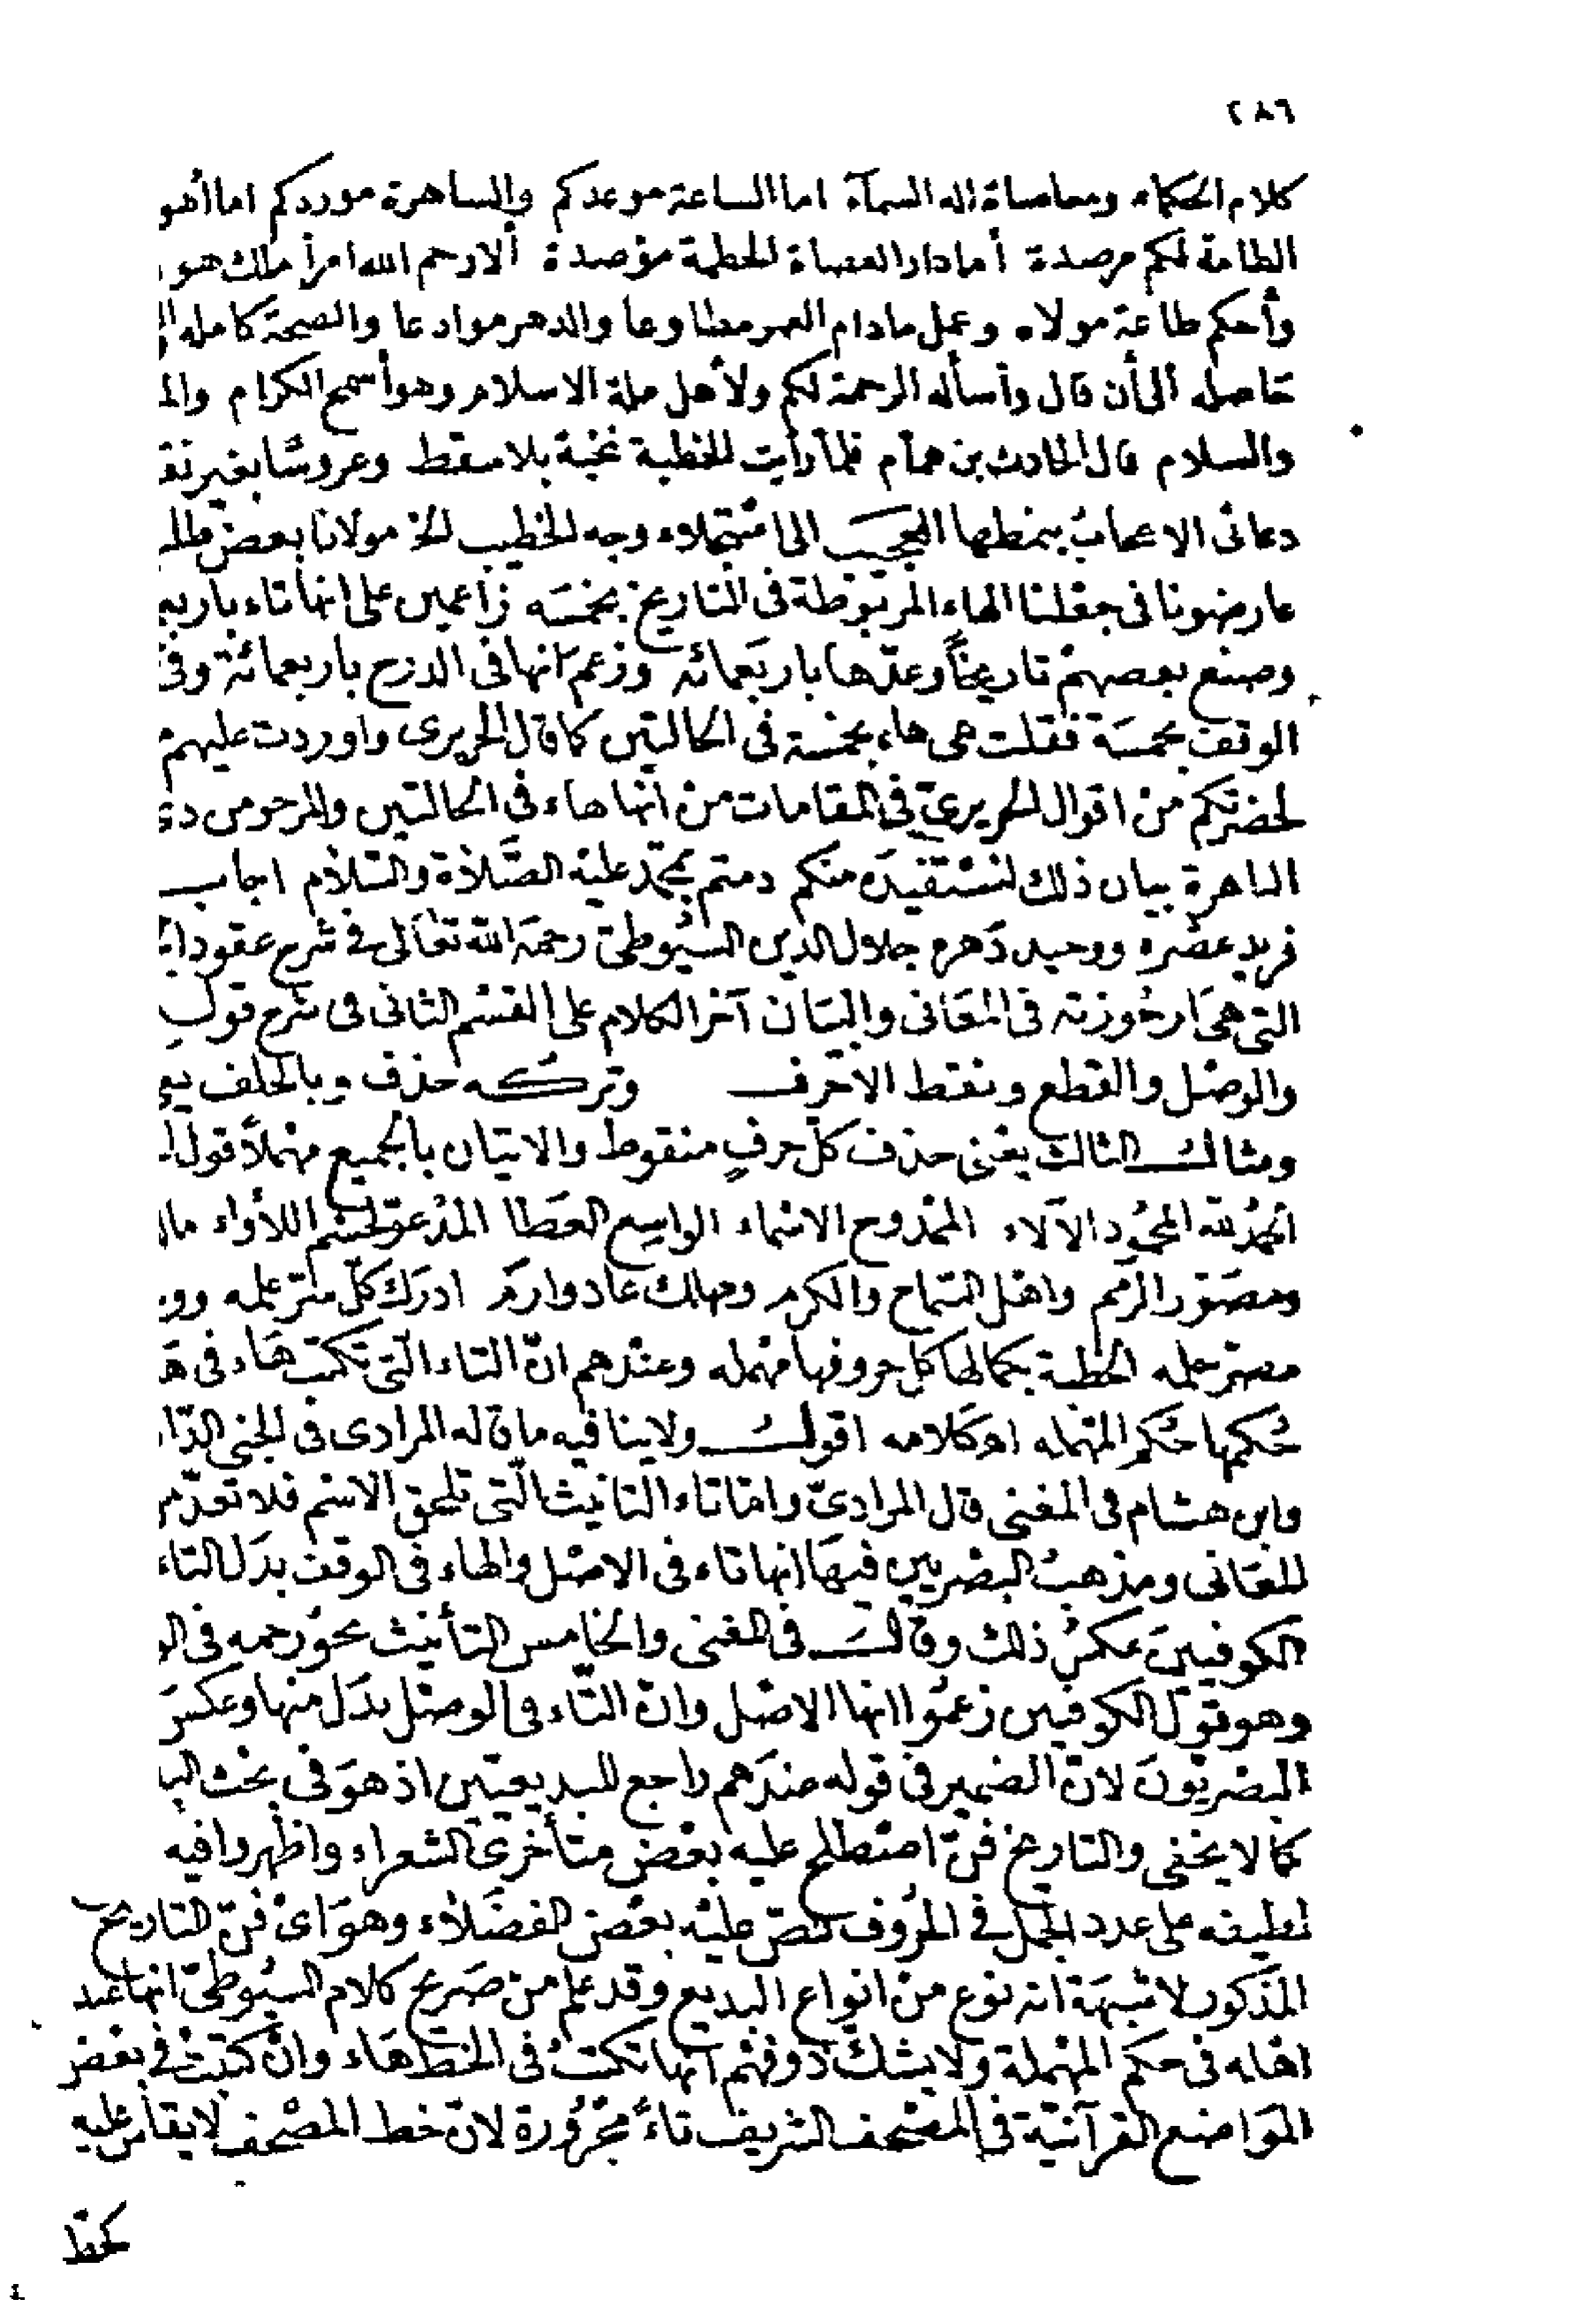 ٢٨٦
كلام الحكماء ومعاصاة اله السمآء اما الساعة موعدكم والساهرة موردكم اما أهو
الطامة لكم مرصدة أما دار العصاة الحطمة مؤصدة ألا رحم الله امرأ ملك هو
وأحكم طاعة مولاه وعمل مادام العمر مطاوعا والدهر موادعا والصحة كامله
حاصله الى أن قال وأسأله الرحمة لكم ولأهل ملة الاسلام وهو أسمح الكرام والم
والسلام قال الحارث بن همام فلما رأيت الخطبة نخبة بلا سقط وعروسًا بغير نقـ
دعانى الاعجاب بنمطها العجيب الى استجلاء وجه الخطيب الخ مولانا بعض طلـ
عارضونا فى جعلنا الهاء المربوطة فى التاريخ بخمسه زاعمين على انها تاء باربع
وصنع بعضهم تاريخاً وعدّها باربعمائه وزعم انها فى الدرج باربعمائة وفى
الوقف بخمسة فقلت هى هاء بخمسة فى الحالتين كما قال الحريرى واوردت عليهم
لحضرتكم من اقوال الحريرىّ فى المقامات من انها هاء فى الحالتين والمرجو من ذ
الماهرة بيان ذلك لنستفيده منكم دمتم بمحمّد عليه الصّلاة والسّلام اجاب
فريد عصره ووحيد دهره جلال الدين السيُوطىّ رحمه الله تعالى فى شرح عقود
التى هى ارجُوزته فى المعَانى والبيَان آخر الكلام على القسم الثانى فى شرح قوله
والوصل والقطع ونقط الاحرف وتركه حذف وبالخلف يـ
ومثال الثالث يعْنى حذف كل حرفٍ منقوط والاتيان بالجميع مهملاً قول
الحمْدُ لله المحمُود الآلاء الممْدوح الاسْماء الواسِع العَطا المدْعوّ لحسْم اللأواء مال
ومصَوّر الرّمم واهْل السّماح والكرم ومهلك عاد وارم ادرَك كلّ سرّ علمه وو
مصرّ حلمه الخطبة بكمالها كل حروفها مهمله وعندهم انّ التاء التى تكتب هَاء فى هَـ
حُكمها حُكم المهمله اهـ كَلامه اقول ولا ينافيه ما قاله المرادى فى الجنى الدّا
وابن هشام فى المغنى قال المرادىّ وامّا تاء التانيث الّتى تلحق الاسْم فلا تعدّ مـ
المعَانى ومذهبُ البصْريين فيهَا انها تاء فى الاصْل والهاء فى الوقف بدَل التاء
الكوفيين عكسُ ذلك وقال فى المغنى والخامس التأنيث نحوُ رحمه فى الو
وهو قوْل الكوفيين زعمُوا انها الاصْل وان التّاء فى الوصْل بدَل منها وعكسَ
البصْريّون لانّ الضمير فى قوله عندَهم راجع للبديعيّين اذ هوَ فى بحْث البـ
كما لا يخفى والتاريخ فنّ اصْطلح عليه بعْض متأخرى الشعراء واظهروا فيه
لطيفه على عدد الجمل فى الحرُوف نصّ عليْه بعْض الفضَلاء وهوَ اىْ فنّ التاريخ
المذكور لا شبهَة انه نوع منْ انواع البديع وقد علم من صَريح كلام السيُوطىّ انها عند
اهله فى حكم المهملة ولا يشك ذو فهْم انها تكتبُ فى الخط هَاء وانْ كتبتْ فى بعْض
الموَاضع القرآنيّة فى المصْحف الشريف تاءً مجْرُورة لانّ خط المصْحف لا يقاس عليه
كخط